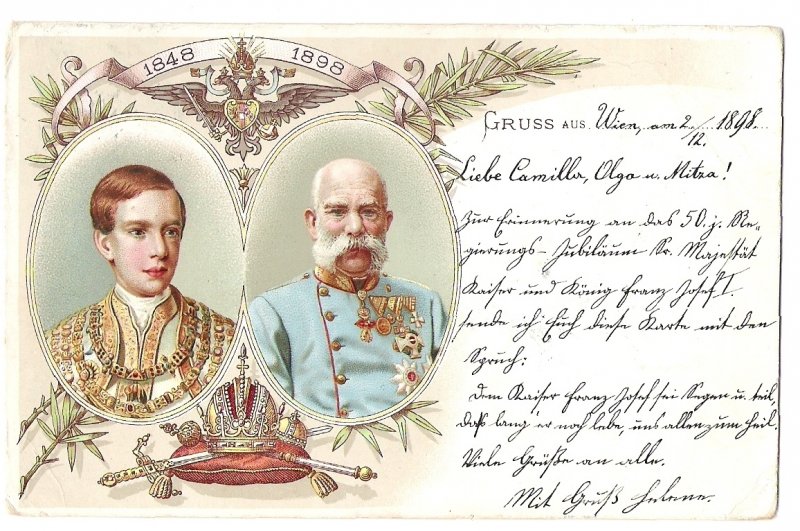 1848 1898
GRUSS AUS Wien, am 2./12. 1898.
Liebe Camilla, Olga u. Mitza!
Zur Erinnerung an das 50. j. Re-
gierungs-Jubiläum Sr. Majestät
Kaiser und König Franz Josef I.
sende ich Euch diese Karte mit den
Spruch:
Dem Kaiser Franz Josef sei Segen u. Heil,
daß lang er noch lebe, uns allen zum Heil.
Viele Grüße an alle.
Mit Gruß Helene.